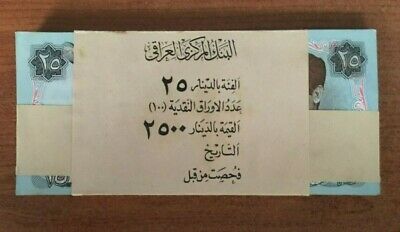 البنك المركزي العراقي
الفئة بالدينار ٢٥
عدد الاوراق النقدية (١٠٠)
القيمة بالدينار ٢٥٠٠
التاريخ
فحصت من قبل
٢٥
٢٥